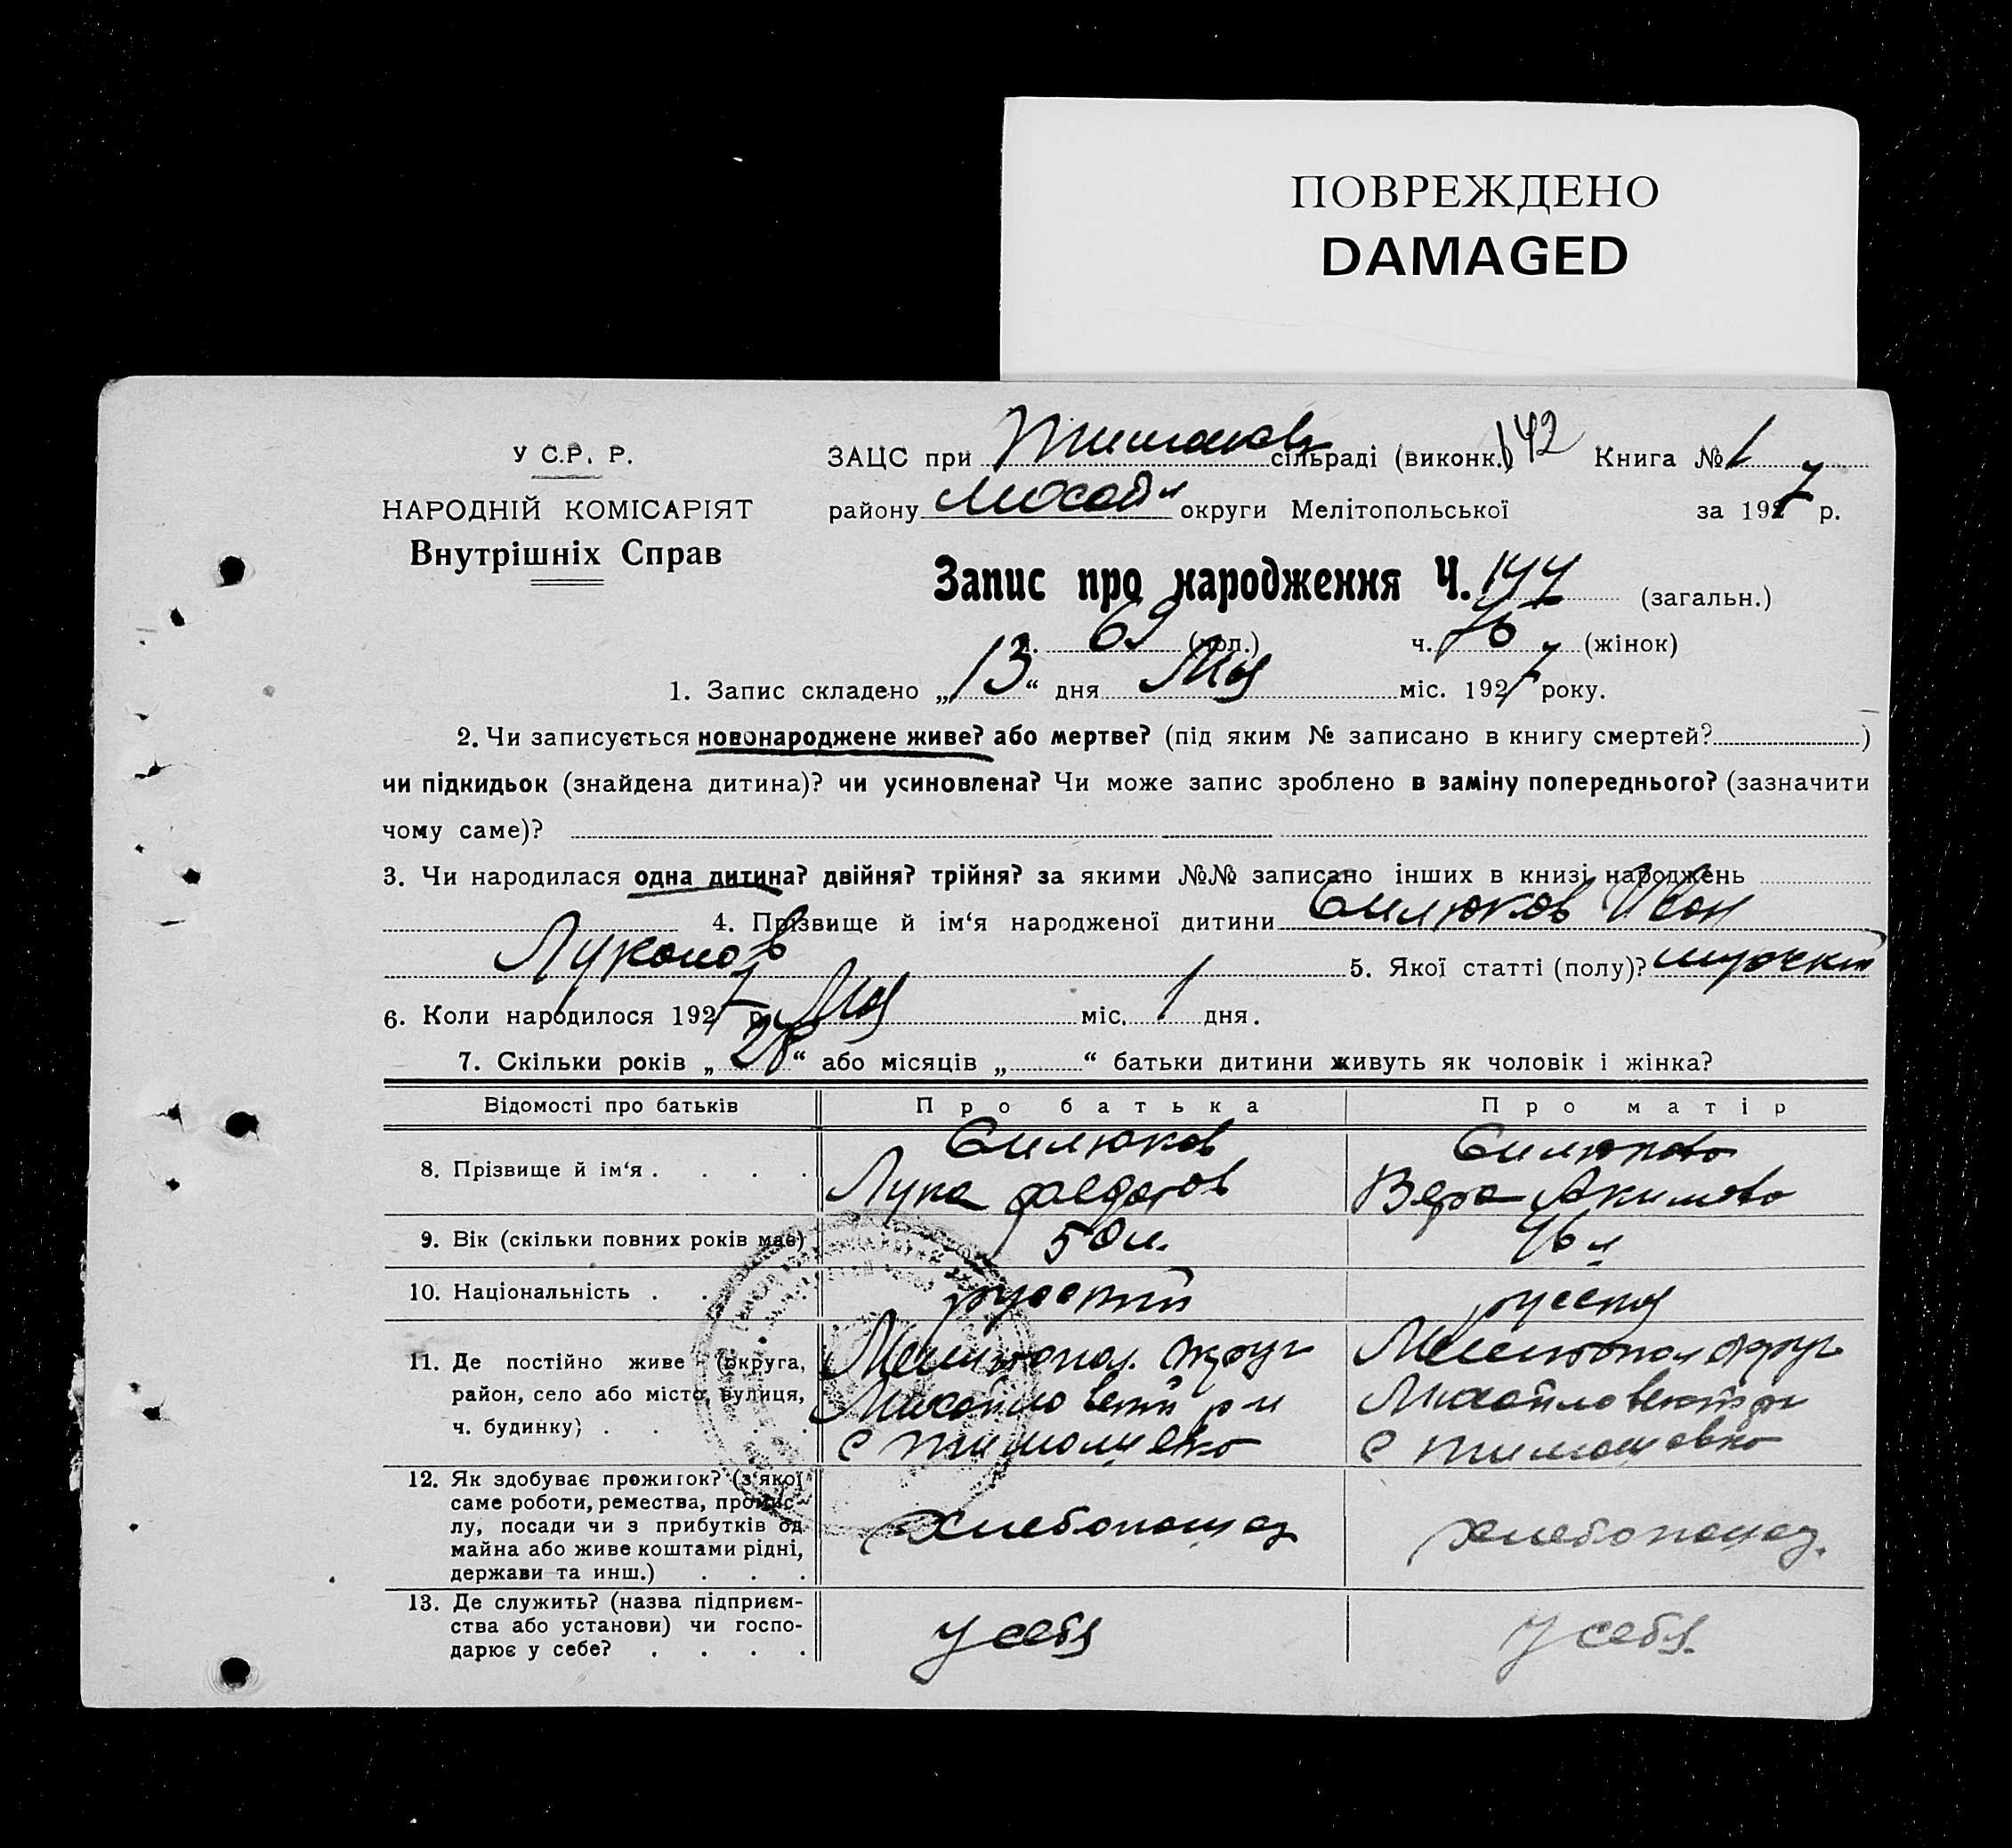 ПОВРЕЖДЕНО
DAMAGED
У С.Р. Р.
НАРОДНІЙ КОМІСАРІЯТ
Внутрішніх Справ
ЗАЦС при Тимошов сільраді (виконк.) 142 Книга № 1
району Михайл округи Мелітопольської за 1927 р.
Запис про народження Ч. 144 (загальн.)
ч. 69 (чол.) ч. (жінок)
1. Запис складено „13“ дня Мая міс. 1927 року.
2. Чи записується новонароджене живе? або мертве? (під яким № записано в книгу смертей? )
чи підкидьок (знайдена дитина)? чи усиновлена? Чи може запис зроблено в заміну попереднього? (зазначити
чому саме)?
3. Чи народилася одна дитина? двійня? трійня? за якими №№ записано інших в книзі народжень
4. Прізвище й ім‘я народженої дитини Силюков Иван
Луканов 5. Якої статті (полу)?
6. Коли народилося 1927 р. Мая міс. 1 дня.
7. Скільки років „28“ або місяців „ “ батьки дитини живуть як чоловік і жінка?
Відомості про батьків Про батька Про матір
8. Прізвище й ім‘я . . . . Силюков Лука Федоров Силюкова Вера Акимова
9. Вік (скільки повних років має) 50 л. 46 л
10. Національність . . русский русская
11. Де постійно живе (округа,
район, село або місто, вулиця,
ч. будинку) . . . .
Мелитопол. округ
Михайловский р н
с Тимошевка
Мелитопол округ
Михайловский рн
с Тимошевка
12. Як здобуває прожиток? (з якої
саме роботи, ремества, промис-
лу, посади чи з прибутків од
майна або живе коштами рідні,
держави та инш.) . . .
хлебопашец
хлебопашец.
13. Де служить? (назва підприєм-
ства або установи) чи госпо-
дарює у себе? . . . .
у себя
у себя.